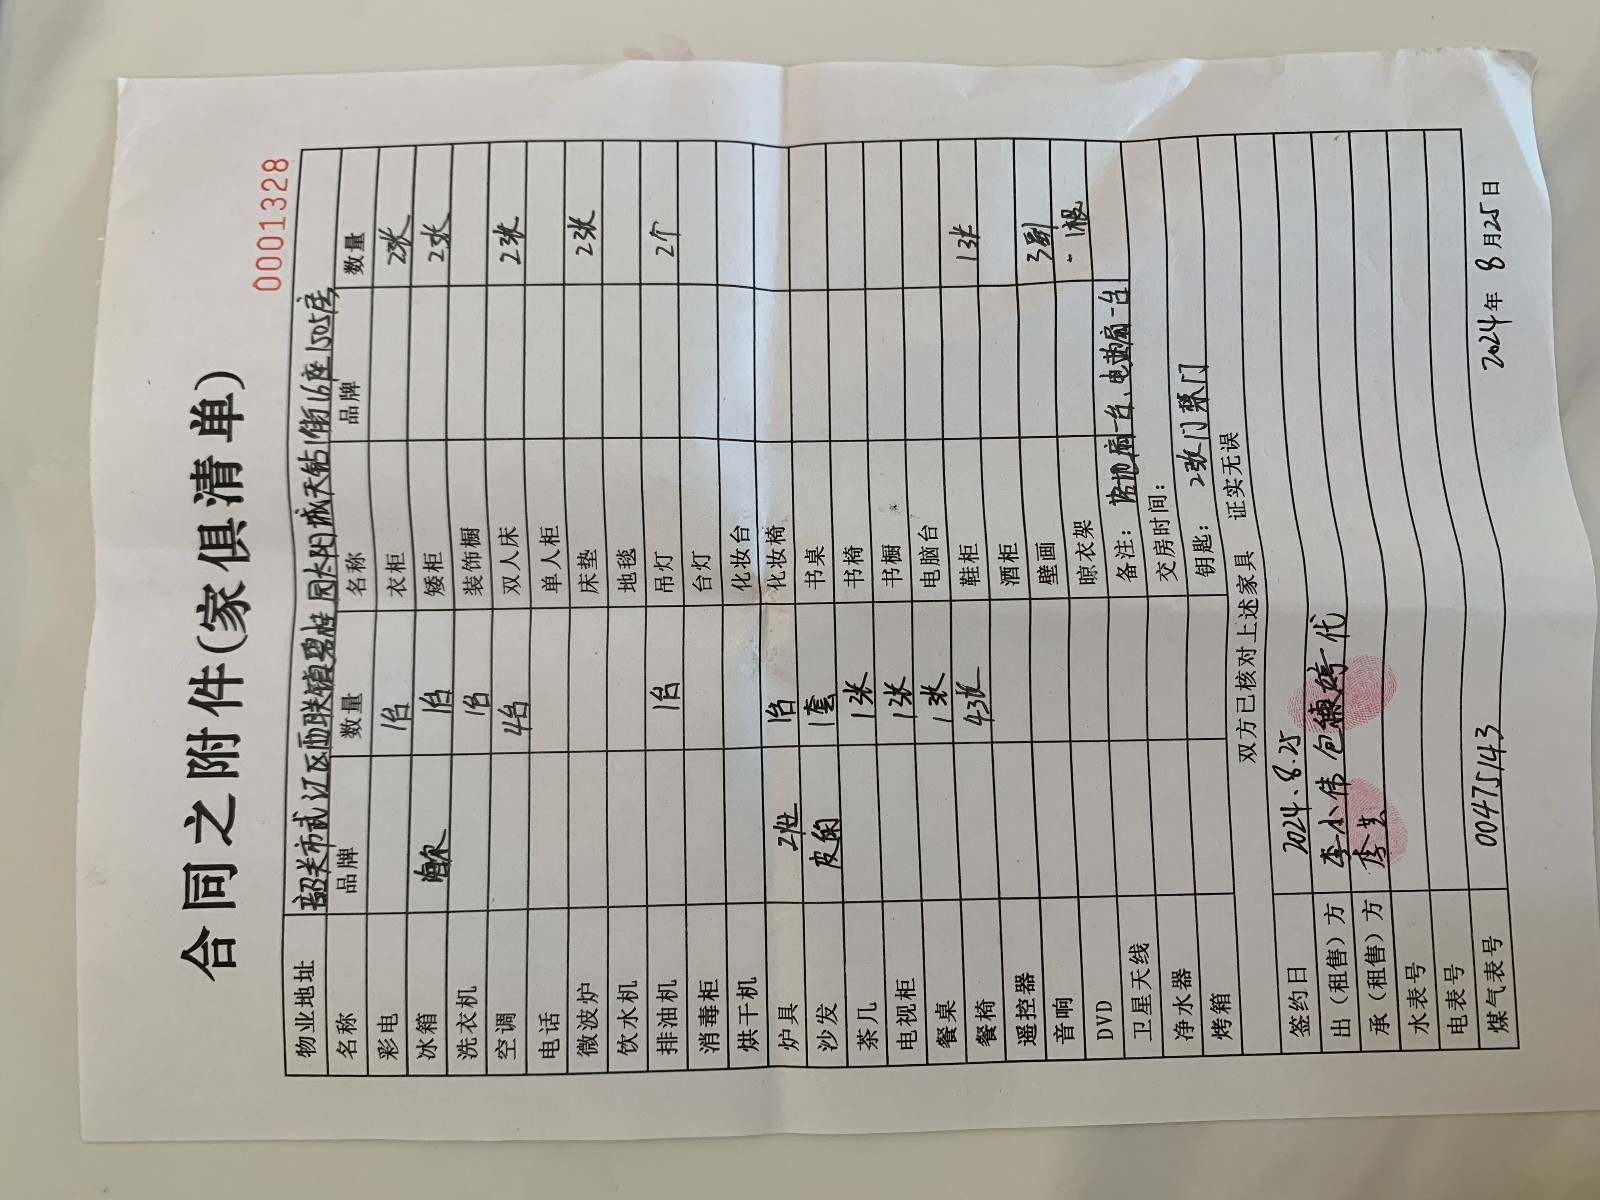 合同之附件(家俱清单)
0001328
物业地址 韶关市武江区西联镇碧桂园太阳城天钻1街16座1505房
名称 品牌 数量 名称 品牌 数量
彩电 1台 衣柜 2张
冰箱 1台 矮柜 2张
洗衣机 1台 装饰橱
空调 4台 双人床 2张
电话 单人柜
微波炉 床垫 2张
饮水机 地毯
排油机 1台 吊灯 2个
消毒柜 台灯
烘干机 化妆台
炉具 1台 化妆椅
沙发 皮的 1套 书桌
茶几 1张 书椅
电视柜 1张 书橱
餐桌 1张 电脑台
餐椅 4张 鞋柜 1张
遥控器 酒柜
音响 壁画 3副
DVD 晾衣架 1根
卫星天线 备注: 落地扇一台、电风扇一台
净水器 交房时间:
烤箱 钥匙: 2张门禁门
双方已核对上述家具 证实无误
签约日 2024.8.25
出(租售)方 李小伟 包 婷代
承(租售)方
水表号
电表号
煤气表号 00475143 2024年8月25日